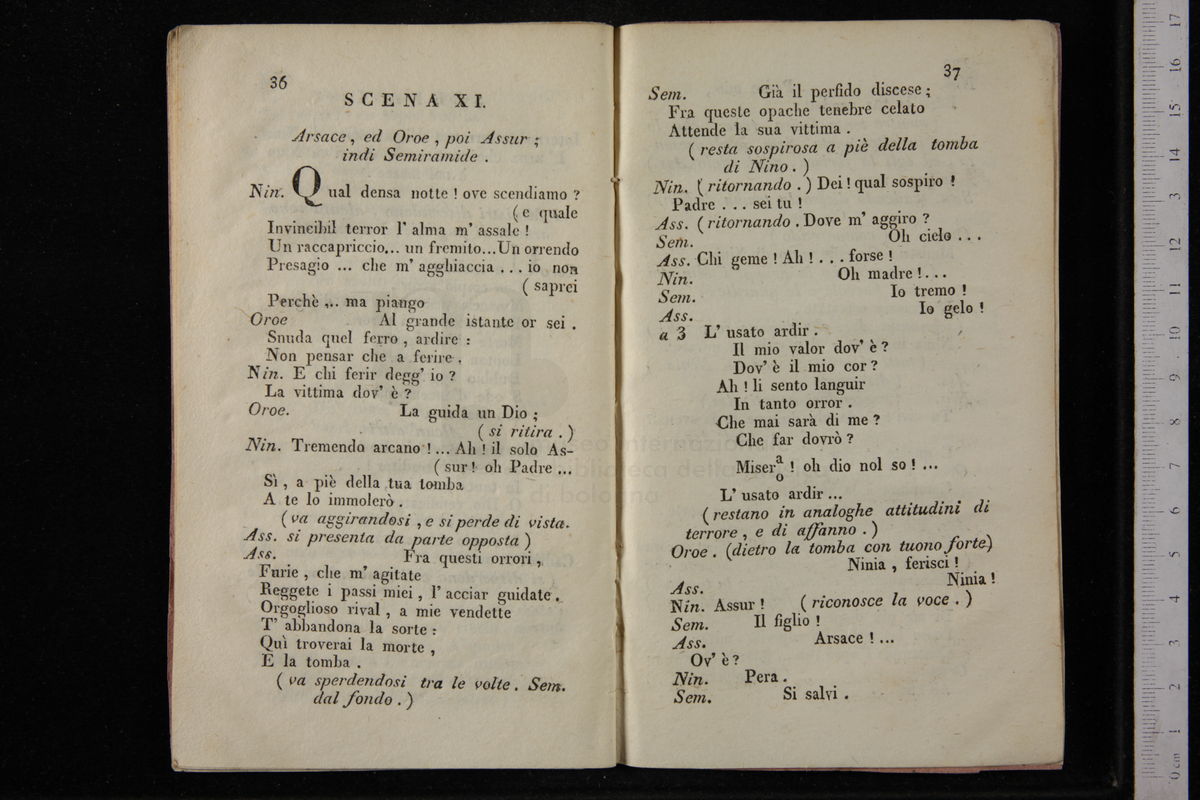 36
SCENA XI.
Arsace, ed Oroe, poi Assur;
indi Semiramide.
Nin. Qual densa notte! ove scendiamo?
(e quale
Invincibil terror l'alma m'assale!
Un raccapriccio... un fremito...Un orrendo
Presagio ... che m'agghiaccia ... io non
(saprei
Perchè ... ma piango
Oroe Al grande istante or sei.
Snuda quel ferro, ardire:
Non pensar che a ferire.
Nin. E chi ferir degg' io?
La vittima dov' è?
Oroe. La guida un Dio;
(si ritira.)
Nin. Tremendo arcano!... Ah! il solo As-
(sur! oh Padre ...
Sì, a piè della tua tomba
A te lo immolerò.
(va aggirandosi, e si perde di vista.
Ass. si presenta da parte opposta)
Ass. Fra questi orrori,
Furie, che m'agitate
Reggete i passi miei, l'acciar guidate.
Orgoglioso rival, a mie vendette
T'abbandona la sorte:
Quì troverai la morte,
E la tomba.
(va sperdendosi tra le volte. Sem.
dal fondo.)
37
Sem. Già il perfido discese;
Fra queste opache tenebre celato
Attende la sua vittima.
(resta sospirosa a piè della tomba
di Nino.)
Nin. (ritornando.) Dei! qual sospiro!
Padre ... sei tu!
Ass. (ritornando. Dove m'aggiro?
Sem. Oh cielo ...
Ass. Chi geme! Ah! ... forse!
Nin. Oh madre!...
Sem. Io tremo!
Ass. Io gelo!
a 3 L'usato ardir.
Il mio valor dov' è?
Dov' è il mio cor?
Ah! li sento languir
In tanto orror.
Che mai sarà di me?
Che far dovrò?
Miser a/o ! oh dio nol so! ...
L'usato ardir ...
(restano in analoghe attitudini di
terrore, e di affanno.)
Oroe. (dietro la tomba con tuono forte)
Ninia, ferisci!
Ass. Ninia!
Nin. Assur! (riconosce la voce.)
Sem. Il figlio!
Ass. Arsace!...
Ov' è?
Nin. Pera.
Sem. Si salvi.